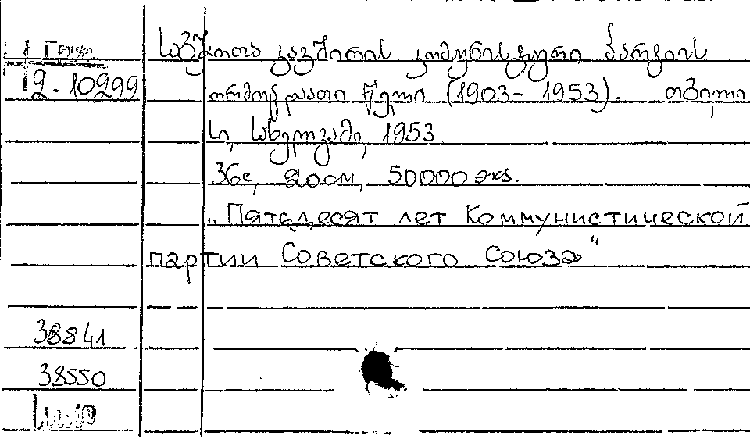 1 Груз.
12-10299
საბჭოთა კავშირის კომუნისტური პარტიის
ორმოცდაათი წელი (1903-1953). თბილი
სი, სახელგამი, 1953.
36с, 20см, 50000 экз.
„Пятьдесят лет Коммунистической
партии Советского Союза"
38841
38550